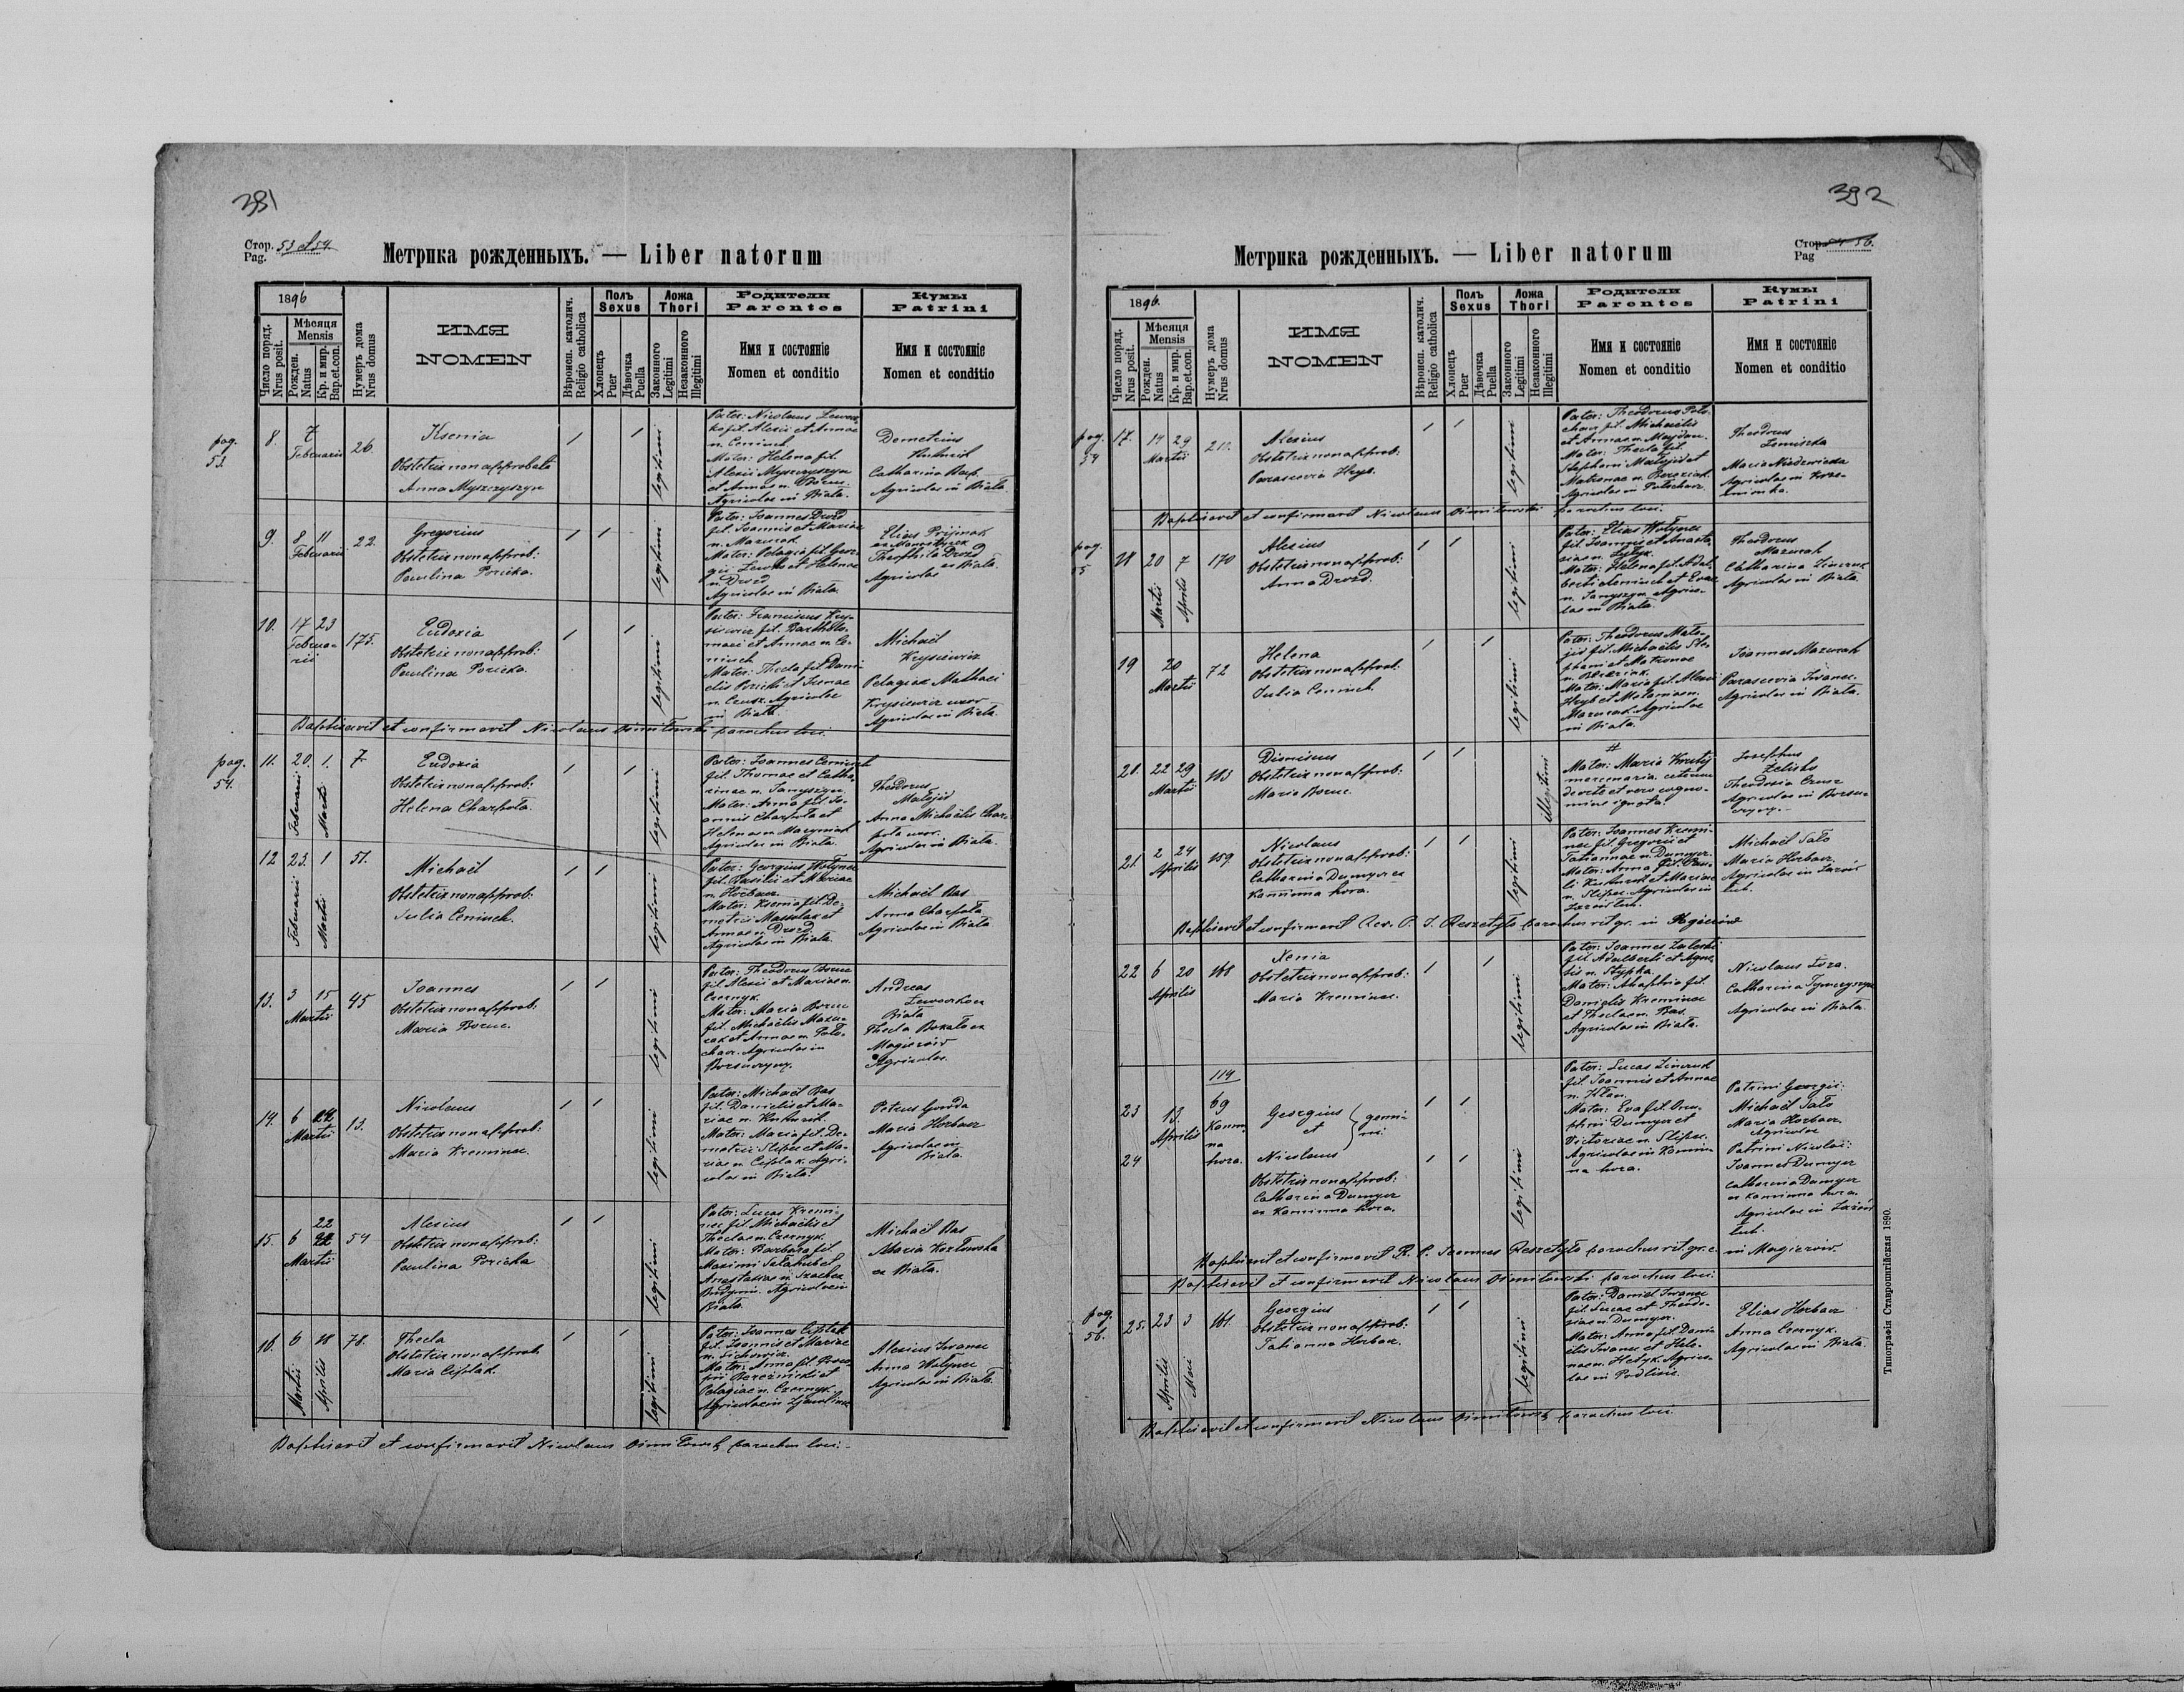 391
Стор. 53 et 54.
Pag.
Метрика рожденныхъ. — Liber natorum
1896
Число поряд.
Nrus posit.
Мѣсяця
Mensis
Рожден.
Natus
Кр. и мир.
Bap.et.con.
Нумеръ дома
Nrus domus
ИМЯ
NOMEN
Вѣроисп. католич.
Religio catholica
Полъ
Sexus
Хлопецъ
Puer
Дѣвочка
Puella
Ложа
Thori
Законного
Legitimi
Незаконного
Illegitimi
Родители
Parentes
Имя и состояніе
Nomen et conditio
Кумы
Patrini
Имя и состояніе
Nomen et conditio
pag.
53.
8.
7
Februarii
26.
Ksenia
Obstetrix non approbata
Anna Myszczyszyn
legitimi
Pater: Nicolaus
fil. Alexii et Annae
Mater: Helena fil.
Alexii Myszczyszyn
et Annae n. Boruc.
Agricolae in Biała.
Demetrius
Catharina Bas
Agricolae in Biała
9.
8 11
Februarii
22.
Gregorius
Obstetrix non approb:
Paulina Poricka.
legitimi
Pater: Joannes Drozd
fil. Joannis et Mariae
n. Mazurak.
Mater: Pelagia fil. Geor-
gii et Helenae
n. Drozd
Agricolae in Biała.
Elias Prijmak
Theophila Drozd
Agricolae ex Biała.
10.
17 23
Februa-
rii
175.
Eudoxia
Obstetrix non approb:
Paulina Poricka.
legitimi
Pater: Franciscus Kry-
siewicz fil. Bartholo-
maei et Annae n. Ce-
ninch
Mater: Thecla fil. Dani-
elis Poricki et Irenae
n. Crusz. Agricolae
in Biała.
Michaël
Krysiewicz
Pelagia Mathaei
Krysiewicz uxor
Agricolae in Biała.
Baptisavit et confirmavit Nicolaus Dimitowski parochus loci.
pag.
54.
11.
20. 1.
Februarii Martii
7
Eudoxia
Obstetrix non approb:
Helena Charpola.
legitimi
Pater: Joannes Ceninch
fil. Thomae et Catha-
rinae n. Janyszyn.
Mater: Anna fil. Jo-
annis Charpola et
Helenae n.
Agricolae in Biała.
Theodorus
Matejid
Anna Michaëlis Char-
pola uxor.
Agricolae in Biała.
12
23. 1
Februarii Martii
51.
Michaël
Obstetrix non approb:
Julia Ceninch.
legitimi
Pater: Georgius Wołynec
fil. Basilii et Mariae
n. Horbacz.
Mater: Ksenia fil. De-
metrii et
Annae n. Drozd
Agricolae in Biała.
Michaël Bas
Anna Charpola
Agricolae in Biała
13.
3 15
Martii
45
Joannes
Obstetrix non approb:
Maria Boruc.
legitimi
Pater: Theodorus Boruc
fil. Alexii et Mariae n.
Czernyk.
Mater: Maria Boruc
fil. Michaëlis Mazu-
rak et Annae n. Poło-
chacz. Agricolae in
Andreas
Biała
Thecla ex
Magierów
Agricolae.
14.
6 22
Martii
13.
Nicolaus
Obstetrix non approb:
Maria Kreminec.
legitimi
Pater: Michaël Bas
fil. Danielis et Ma-
riae n.
Mater: Maria fil. De-
metrii Slipec et Ma-
riae n. Ciplak. Agri-
colae in Biała.
Petrus Gawda
Maria Horbacz
Agricolae in
Biała.
15.
6 22
Martii
54
Alexius
Obstetrix non approb:
Paulina Poricka
legitimi
Pater: Lucas Kremi-
nec fil. Michaëlis et
Theclae n. Czernyk.
Mater: Barbara fil.
Maximi et
Anastasiae n.
Agricolae in
Biała.
Michaël Bas
Maria Kozłowska
ex Biała.
16.
6 18
Martii Aprilis
78.
Thecla
Obstetrix non approb.
Maria Ciplak.
legitimi
Pater: Joannes Ciplak
fil. Joannis et Mariae
n.
Mater: Anna fil.
et
Pelagiae n. Czernyk
Agricolae in
Alexius Iwanec
Anna Wołynec
Agricolae in Biała.
Baptisavit et confirmavit Nicolaus Dimitowski parochus loci.
392
Стор.
Pag
Метрика рожденныхъ. — Liber natorum
1896.
Число поряд.
Nrus posit.
Мѣсяця
Mensis
Рожден.
Natus
Кр. и мир.
Bap.et.con.
Нумеръ дома
Nrus domus
ИМЯ
NOMEN
Вѣроисп. католич.
Religio catholica
Полъ
Sexus
Хлопецъ
Puer
Дѣвочка
Puella
Ложа
Thori
Законного
Legitimi
Незаконного
Illegitimi
Родители
Parentes
Имя и состояніе
Nomen et conditio
Кумы
Patrini
Имя и состояніе
Nomen et conditio
pag.
54
17.
14 29
Martii
211.
Alexius
Obstetrix non approb:
Parascevia Hryb.
legitimi
Pater: Theodorus Poło-
chacz fil. Michaëlis
et Annae n. Majdan.
Mater: Thecla fil.
Stephani Matejid et
Matronae n. Bereziak.
Agricolae in Połochacz.
Theodorus
Maria Niedzwiecka
Agricolae in
Baptisavit et confirmavit Nicolaus Dimitowski parochus loci.
pag.
55
18
20 7
Martii Aprilis
170
Alexius
Obstetrix non approb:
Anna Drozd.
legitimi
Pater: Elias Wołynec
fil. Joannis et Anasta-
siae n.
Mater: Helena fil. Adal-
berti Ceninch et Evae
n. Janyszyn. Agrico-
lae in Biała.
Theodorus
Mazurak
Catharina Zinczuk
Agricolae in Biała.
19
20
Martii
72
Helena
Obstetrix non approb.
Julia Ceninch
legitimi
Pater: Theodorus Mate-
jid fil. Michaëlis Ste-
phani et Matronae
n. Bereziak.
Mater: Maria fil. Alexii
Hryb et n.
Mazurak. Agricolae
in Biała.
Joannes Mazurak
Parascevia Iwanec.
Agricolae in Biała.
20.
22 29
Martii
183
Dionisius
Obstetrix non approb:
Maria Boruc.
illegitimi
#
Mater: Maria
mercenaria. ceterum
de orte et vero cogno-
mine ignota.
Josephus
Zelisko
Theodosia Crusz
Agricolae in
21.
2 24
Aprilis
159.
Nicolaus
Obstetrix non approb:
Catharina Dumycz ex
Kaminna hora.
legitimi
Pater: Joannes Kremi-
nec fil. Gregorii et
Tatiannae n. Dumycz.
Mater: Anna fil.
et Mariae
n. Slipec. Agricolae in
Michaël Sało
Maria Horbacz.
Agricolae in
Baptisavit et confirmavit Rev. P. J. Reszetyło parochus rit. gr. in Magierów
22
6 20
Aprilis
168
Xenia
Obstetrix non approb:
Maria Kreminec.
legitimi
Pater: Joannes Zaleski
fil. Adalberti et Agne-
tis n. Stypka.
Mater: Ahaphia fil.
Danielis Kreminec
et Theclae n. Bas.
Agricolae in Biała.
Nicolaus Fora.
Catharina Tymczyszyn
Agricolae in Biała.
23
24
13.
Aprilis
119
69
Kamin-
na
hora.
Georgius
et
Nicolaus
gemi-
ni.
Obstetrix non approb:
Catharina Dumycz
ex Kaminna hora.
legitimi
Pater: Lucas Zinczuk
fil. Joannis et Annae
n.
Mater: Eva fil. Onu-
phrii Dumycz et
Victoriae n. Slipec.
Agricolae in Kamin-
na hora.
Patrini Georgii:
Michaël Sało
Maria Horbacz.
Agricolae
Patrini Nicolai:
Joannes Dumycz
Catharina Dumycz
ex Kaminna hora.
Agricolae in
Baptisavit et confirmavit R. P. Joannes Reszetyło parochus rit. gr. c. in Magierów.
Baptisavit et confirmavit Nicolaus Dimitowski parochus loci.
pag.
56.
25.
23 3
Aprilis Maii
161.
Georgius
Obstetrix non approb.
Tatianna Horbacz.
legitimi
Pater: Daniel Iwanec
fil. Lucae et Theodo-
siae n. Dumycz.
Mater: Anna fil. Dani-
elis Iwanec et Hele-
nae n. Hetyk. Agrico-
lae in Podlisie.
Elias Horbacz
Anna Czernyk.
Agricolae in Biała.
Baptisavit et confirmavit Nicolaus Dimitowski parochus loci.
Типографія Ставропигійская 1890.